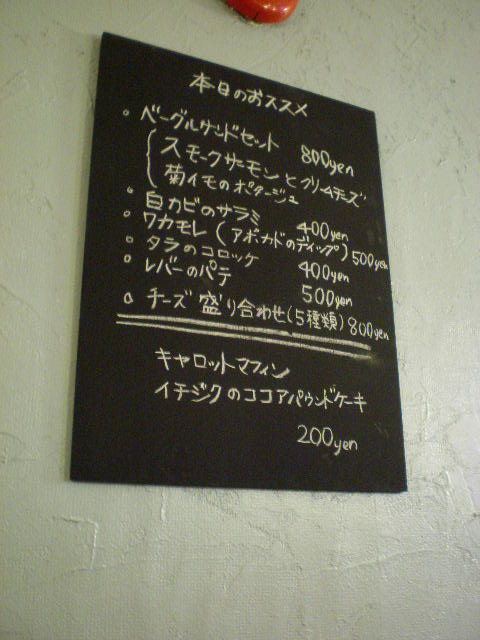 本日のおススメ
。ベーグルサンドセット 800yen
スモークサーモンとクリームチーズ
菊イモのポタージュ
。白カビのサラミ 400yen
。ワカモレ(アボカドのディップ) 500yen
。タラのコロッケ 400yen
。レバーのパテ 500yen
。チーズ盛り合わせ(5種類) 800yen
キャロットマフィン
イチジクのココアパウンドケーキ
200yen